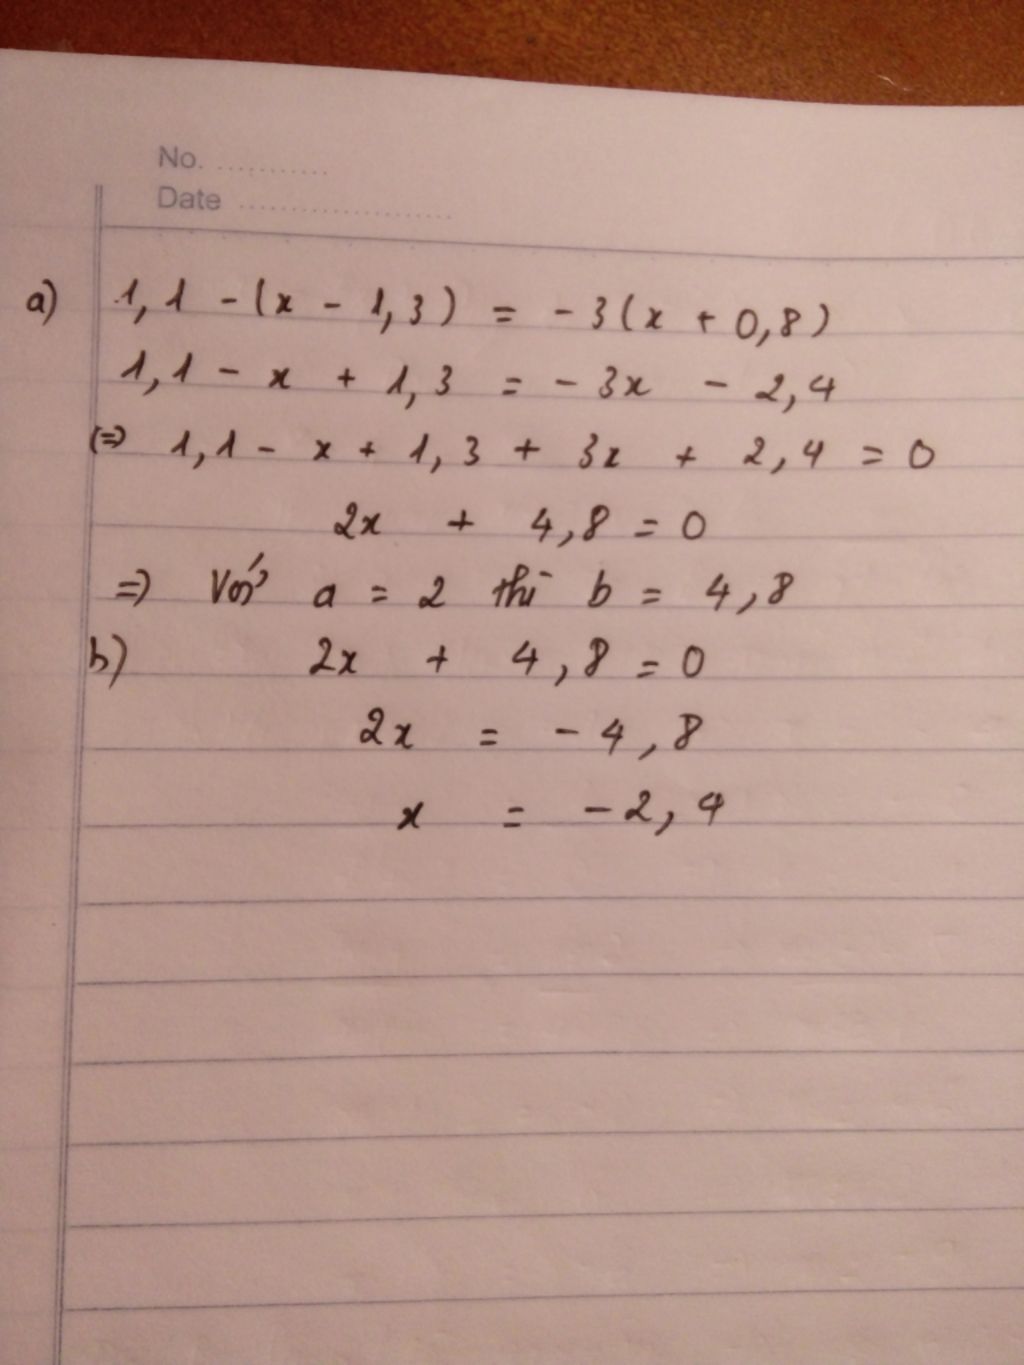 No. ...........
Date .....................
a) 1,1 - (x - 1,3) = -3(x + 0,8)
1,1 - x + 1,3 = - 3x - 2,4
(=) 1,1 - x + 1,3 + 3x + 2,4 = 0
2x + 4,8 = 0
=) Với a = 2 thì b = 4,8
b) 2x + 4,8 = 0
2x = - 4,8
x = -2,4